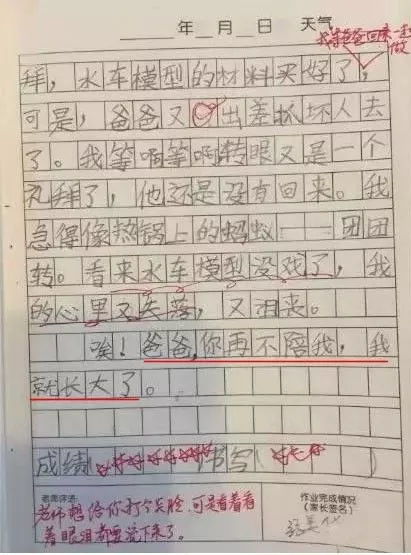 年 月 日 天气
我等爸爸回来一起做
拜，水车模型的材料买好了，
可是，爸爸又出差抓坏人去
了。我等啊等啊转眼又是一个
礼拜了，他还是没有回来。我
急得像热锅上的蚂蚁——团团
转。看来水车模型没戏了，我
的心里又失落，又沮丧。
唉！爸爸，你再不陪我，我
就长大了。
成绩 好好好好好好 书写
老师评语：
老师想给你打个笑脸，可是看着看
着眼泪都要流下来了。
作业完成情况
（家长签名）